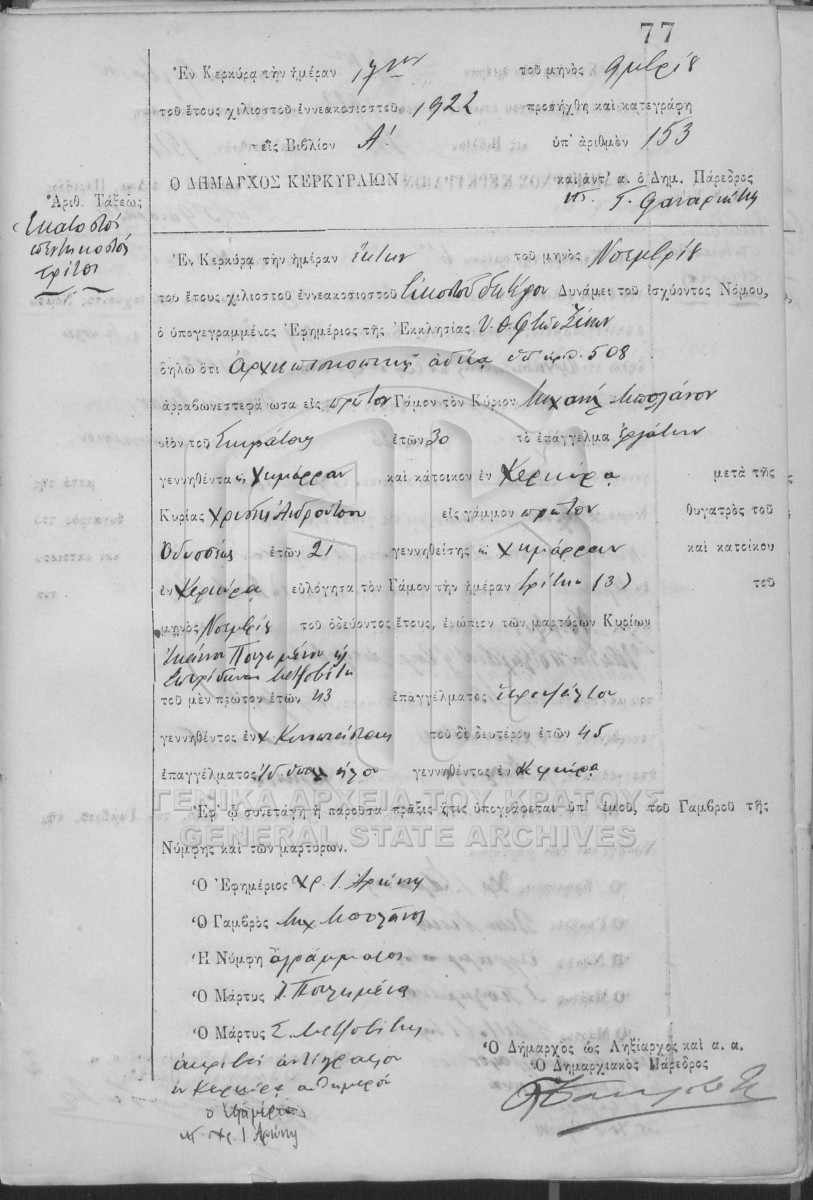 77
Ἐν Κερκύρᾳ τὴν ἡμέραν 17ην τοῦ μηνὸς 9μβρίου
τοῦ ἔτους χιλιοστοῦ ἐννεακοσιοστοῦ 1922 προσήχθη καὶ κατεγράφη
εἰς Βιβλίον Α! ὑπ' ἀριθμὸν 153
Ο ΔΗΜΑΡΧΟΣ ΚΕΡΚΥΡΑΙΩΝ καὶ ἀντ' α. ὁ Δημ. Πάρεδρος
Ἀριθ. Τάξεως
Ἑκατοστὸν
πεντηκοστὸν
τρίτον
Ἐν Κερκύρᾳ τὴν ἡμέραν ἕκτην τοῦ μηνὸς Νοεμβρίου
τοῦ ἔτους χιλιοστοῦ ἐννεακοσιοστοῦ Εἰκοστοῦ δευτέρου Δυνάμει τοῦ ἰσχύοντος Νόμου,
ὁ ὑπογεγραμμένος Ἐφημέριος τῆς Ἐκκλησίας Υ. Θ. τῶν Ξένων
δηλῶ ὅτι Ἀρχιεπισκοπικῇ ἀδείᾳ ὑπ' ἀριθ. 508
ἀρραβωνεστεφάνωσα εἰς πρῶτον Γάμον τὸν Κύριον Μιχαὴλ Μπολάνον
υἱὸν τοῦ Σωκράτους ἐτῶν 30 τὸ ἐπάγγελμα Ἐργάτην
γεννηθέντα εἰς Χημάρραν καὶ κάτοικον ἐν Κερκύρᾳ μετὰ τῆς
Κυρίας Χρυσῆς Ἀνδρούτσου εἰς γάμμον πρῶτον θυγατρὸς τοῦ
Ὀδυσσέως ἐτῶν 21 γεννηθείσης εἰς Χημάρραν καὶ κατοίκου
ἐν Κερκύρᾳ εὐλόγησα τὸν Γάμον τὴν ἡμέραν τρίτην (3) τοῦ
μηνὸς Νοεμβρίου τοῦ ὁδεύοντος ἔτους, ἐνώπιον τῶν μαρτύρων Κυρίων
τοῦ μὲν πρώτου ἐτῶν 43 ἐπαγγέλματος ἱεροψάλτου
γεννηθέντος ἐν τοῦ δὲ δευτέρου ἐτῶν 45
ἐπαγγέλματος γεννηθέντος ἐν Κερκύρᾳ
ΓΕΝΙΚΑ ΑΡΧΕΙΑ ΤΟΥ ΚΡΑΤΟΥΣ
Ἐφ' ᾧ συνετάγη ἡ παροῦσα πρᾶξις ἥτις ὑπογράφεται ὑπ' ἐμοῦ, τοῦ Γαμβροῦ τῆς
GENERAL STATE ARCHIVES
Νύμφης καὶ τῶν μαρτύρων.
Ὁ Ἐφημέριος Χρ. Ι. Ἀρώνης
Ὁ Γαμβρὸς Μιχ. Μπολάνος
Ἡ Νύμφη ἀγράμματος
Ὁ Μάρτυς
Ὁ Μάρτυς
Ὁ Δήμαρχος ὡς Ληξίαρχος καὶ α. α.
Ὁ Δημαρχιακὸς Πάρεδρος
ἀκριβὲς ἀντίγραφον
ἐν Κερκύρᾳ αὐθημερόν
ὁ Ἐφημέριος
Χρ. Ι. Ἀρώνης